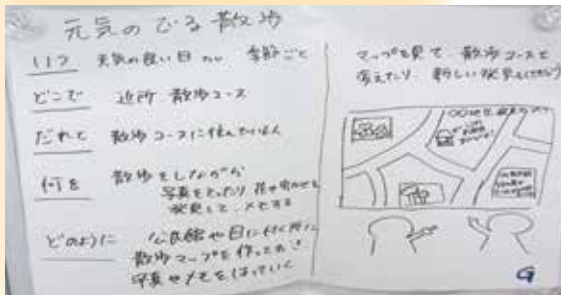 元気のでる散歩
いつ 天気の良い日 季節ごと
どこで 近所 散歩コース
だれと 散歩コースに住んでいる人
何を 散歩をしながら
写真をとったり
発見して メモする
どのように 公民館や目に付く所に
散歩マップを作っておき
写真やメモをはっていく
マップを見て 散歩コースを
考えたり 新しい発見
G